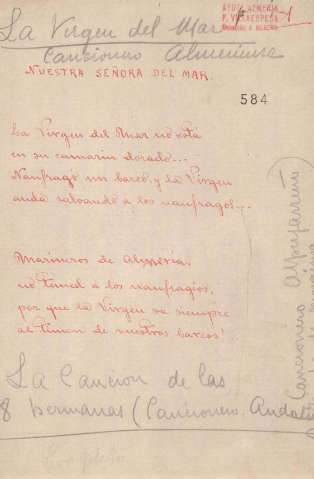 La Virgen del Mar
AYUNT. ALMERIA
P. VILLAESPESA
Cancionero Almeriense
NUESTRA SEÑORA DEL MAR.
584
La Virgen del Mar no está
en su camarin dorado...
Naufragó un barco y la Virgen
anda salvando a los naufragos...
Marineros de Almería,
no temed a los naufragios,
por que la Virgen va siempre
al timon de vuestros barcos!
La Cancion de las
8 hermanas (Cancionero Andaluz
(Cancionero Alpujarreño)
Completo